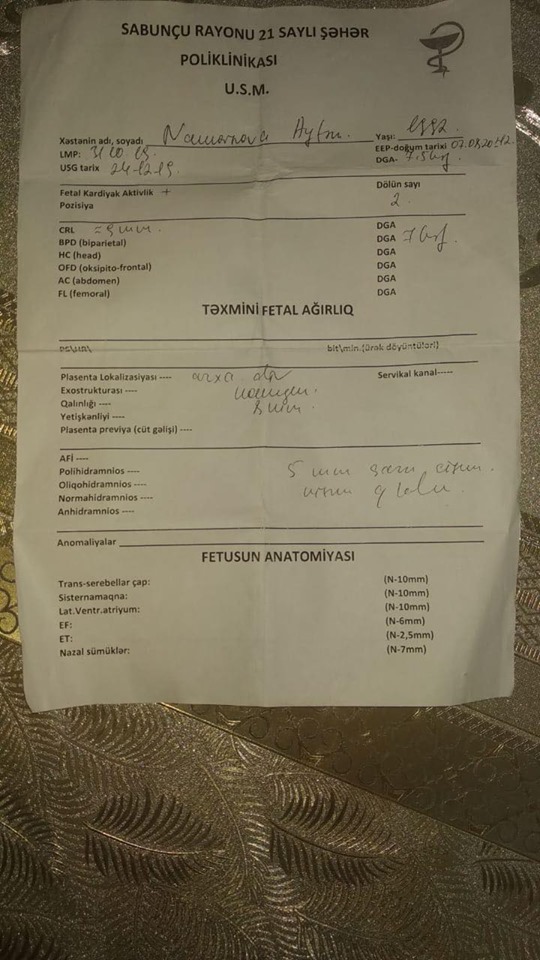 SABUNÇU RAYONU 21 SAYLI ŞƏHƏR
POLİKLİNİKASI
U.S.M.
Xəstənin adı, soyadı Yaşı: 1992.
LMP: 31.10.19. EEP-doğum tarixi
USG tarix 24.12.19. DGA- 7.5
Fetal Kardiyak Aktivlik + Dölün sayı
Pozisiya 2.
CRL DGA
BPD (biparietal) DGA
HC (head) DGA
OFD (oksipito-frontal) DGA
AC (abdomen) DGA
FL (femoral) DGA
TƏXMİNİ FETAL AĞIRLIQ
bit\min.(ürək döyüntüləri)
Plasenta Lokalizasiyası ---- arxa Servikal kanal-----
Exostrukturası ----
Qalınlığı ----
Yetişkənliyi ----
Plasenta previya (cüt gəlişi) ----
AFİ ----
Polihidramnios ---- 5 mm sarı cisim.
Oliqohidramnios ----
Normahidramnios ----
Anhidramnios ----
Anomaliyalar
FETUSUN ANATOMİYASI
Trans-serebellar çap: (N-10mm)
Sisternamaqna: (N-10mm)
Lat.Ventr.atriyum: (N-10mm)
EF: (N-6mm)
ET: (N-2,5mm)
Nazal sümüklər: (N-7mm)